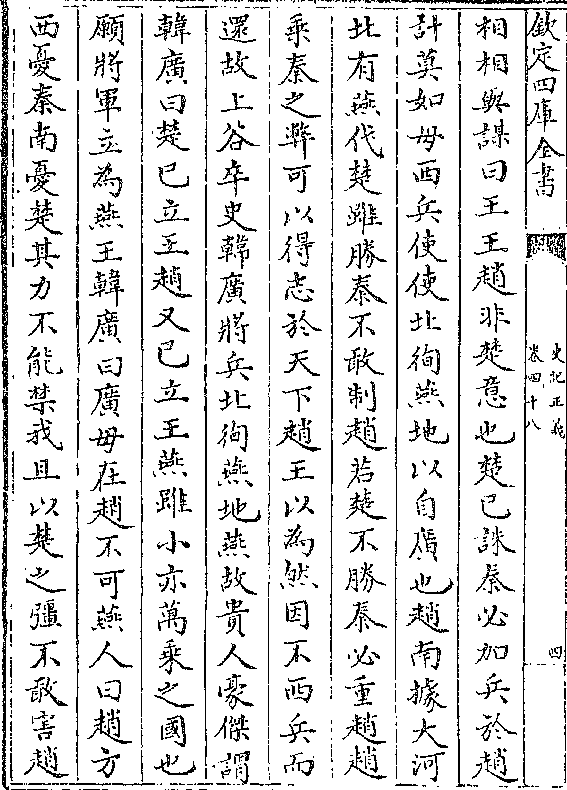 欽定四庫全書
史記正義
卷四十八
四
相相與謀曰王王趙非楚意也楚已誅秦必加兵於趙
計莫如毋西兵使使北徇燕地以自廣也趙南據大河
北有燕代楚雖勝秦不敢制趙若楚不勝秦必重趙趙
乘秦之弊可以得志於天下趙王以為然因不西兵而
還故上谷卒史韓廣將兵北徇燕地燕故貴人豪傑謂
韓廣曰楚已立王趙又已立王燕雖小亦萬乘之國也
願將軍立為燕王韓廣曰廣母在趙不可燕人曰趙方
西憂秦南憂楚其力不能禁我且以楚之彊不敢害趙